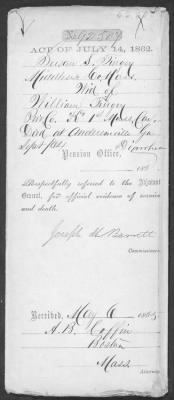 No 92587
ACT OF JULY 14, 1862.
Susan S.
Middlesex Co Mass.
Wid of
William
Co. 1st Mass. Cav.
Died at Andersonville Ga
Sept
Pension Office,
186
Respectfully referred to the Adjutant
General, for official evidence of service
and death.
Joseph H Barrett
Commissioner.
Received, May 6 1865
A. B. Coffin
Boston
Mass
Attorney